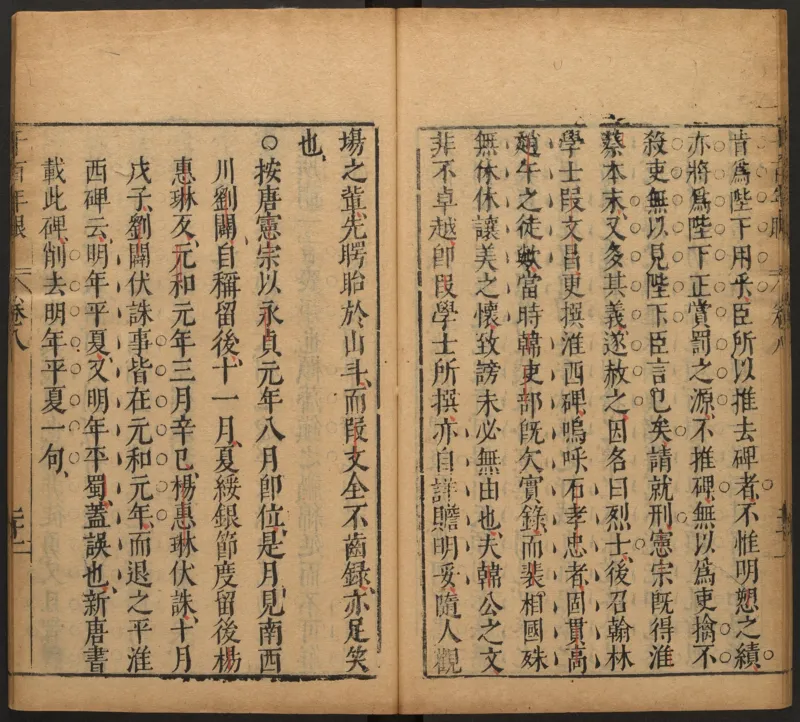 肯為陛下用乎臣所以推去碑者不惟明愬之績
亦將為陛下正賞罰之源不推碑無以為吏擒不
殺吏無以見陛下臣言已矣請就刑憲宗旣得淮
蔡本末又多其義遂赦之因名曰烈士後召翰林
學士段文昌更撰淮西碑嗚呼石孝忠者固貫高
趙午之徒歟當時韓吏部旣欠實錄而裴相國殊
無休休讓美之懷致謗未必無由也夫韓公之文
非不卓越卽段學士所撰亦自詳贍明妥隨人觀
場之輩先腭眙於山斗而段文全不齒錄亦足笑
也
○按唐憲宗以永貞元年八月卽位是月見南西
川劉闢自稱留後十一月夏綏銀節度留後楊
惠琳反元和元年三月辛巳楊惠琳伏誅十月
戊子劉闢伏誅事皆在元和元年而退之平淮
西碑云明年平夏又明年平蜀蓋誤也新唐書
載此碑削去明年平夏一句
百年眼
卷八